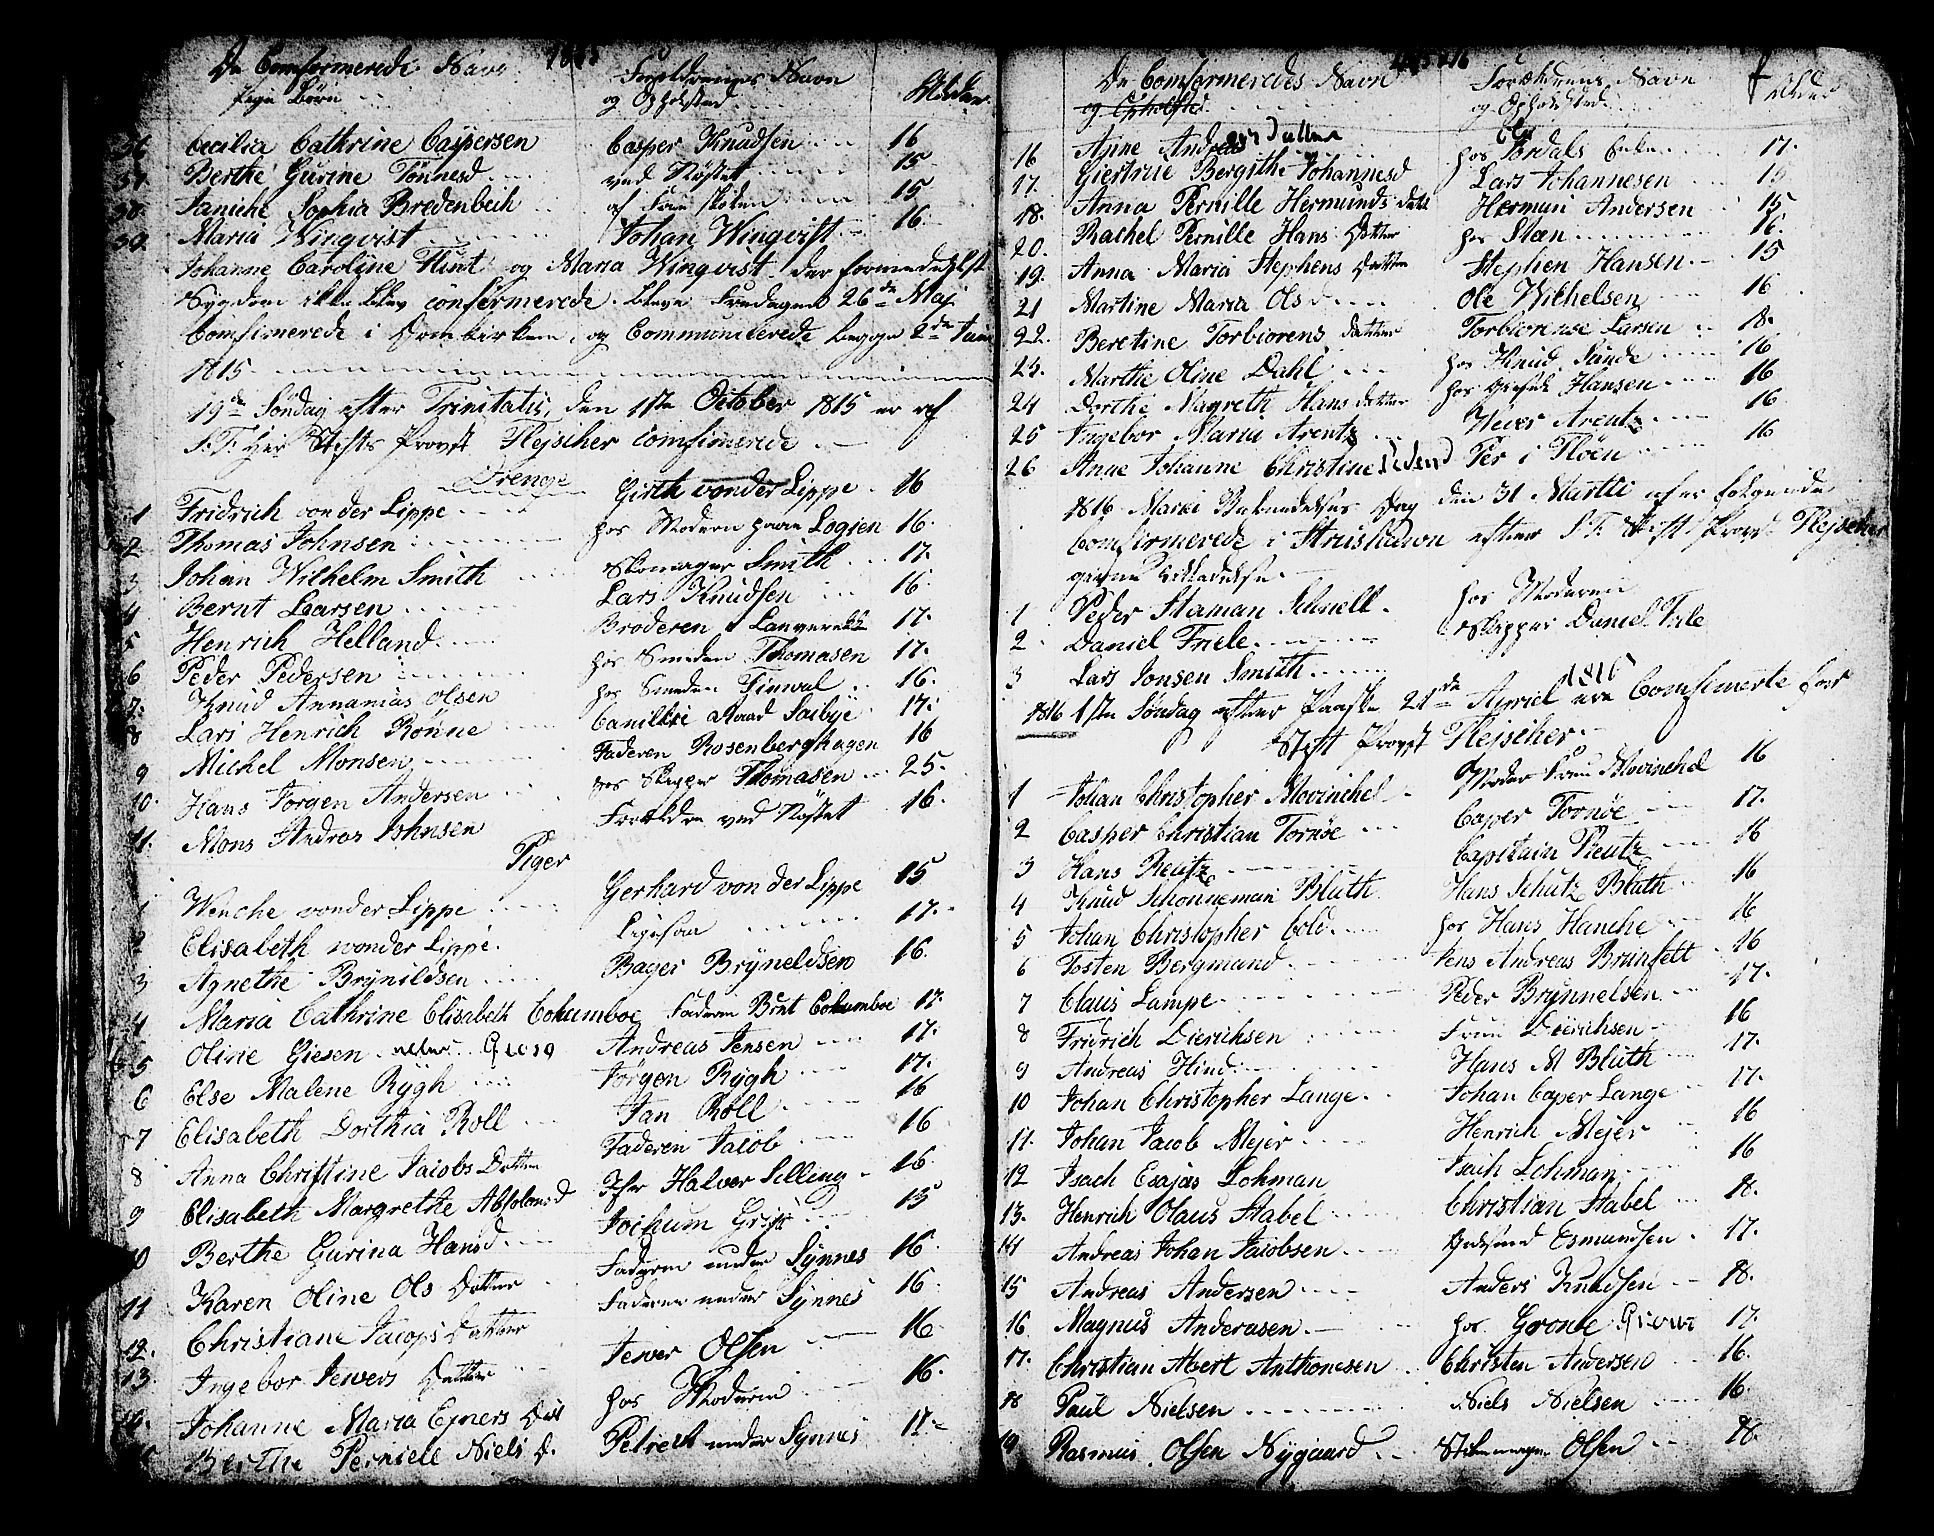 De Comfermerede Navn 1815 Forældrenes Navn Alder
Pige Börn og Opholsted
36 Cecilia Cathrine Caspersen Casper Knudsen 16
37. Berthe Gurine Tönnesd ved Nöstet 15
38. Janiche Sophia Bredenbech af 15
39. Maria Winqvist Johan Winqvist 16.
Johanne Caroline Flint og Maria Winqvist der formedelst
Sygdom ikke blev confermerede. bleve Fredagen 26de Maj
Comfirmerede i Domkirken, og Communicerede begge 2de Juni
1815.
19de Söndag efter Trinitatis, den 1ste October 1815 er af
S. T. Herr Stifts Provst Flejscher comfimerede
Drenge
1 Fridrich von der Lippe Girth von der Lippe 16
2 Thomas Johnsen hos Modern paa Logien 16.
3 Johan Wilhelm Smith Skomager Smith 17.
4 Bernt Larsen Lars Knudsen 16
5 Henrich Helland Broderen i 17.
6 Peder Pedersen hos Smeden Thomasen 17.
7. Knud Annanias Olsen hos Smeden 16.
8 Lars Henrich Rönne Cancelli Raad Soibye 17.
9 Michel Monsen Faderen Rosenberghagen 16
10. Hans Jorgen Andersen hos Skipper Thomasen 25.
11. Mons Andras Johnsen Forældre ved Nöstet 16.
Piger
1 Wenche von der Lippe Gerhard von der Lippe 15
2 Elisabeth von der Lippe. Ligesaa 17.
3 Agnethe Brynildsen Bager Bryneldsen 16.
4 Maria Cathrine Elisabeth Columboe Faderen Bint Columboe 17.
5 Oline Giesen eller Andreas Jensen 17.
6 Else Malene Rÿgh Jörgen Rÿgh 17.
7 Elisabeth Dorthia Roll Jan Roll 16
8 Anna Christine Jacobs Datter Faderen Jacob 16
9 Elisabeth Margrethe Absolonsd Halver Selling 16.
10 Berthe Gurina Hansd Jochum 15
11 Karen Oline Ols Datter Faderen under Synnes 16
12. Christiane Jacops Datter Faderen under Synnes 16
13. Ingebor Jewers Datter Jewer Olsen 16.
14. Johanne Maria Ejners Dat hos Moderen 16.
15 Berthe Perniele Niels D. under Synnes 17.
De Comfermeredes Navn Forældrenes Navn Alder
og Opholsted
16 Anne Andreas Datter hos 17.
17. Giertrue Bergithe Johannesd Lars Johannesen
18. Anna Pernille Hermunds dat Herman Andersen 15
20. Rachel Pernille Hans Datter hos Steen 16.
19. Anna Maria Stephens Datter Stephen Hansen 15
21 Martine Maria Olsd Ole Wilhelsen 16
22. Beretine Torbiorens datter Torbiorense Larsen 18.
23. Marthe Oline Dahl hos Knud Sunde 16
24 Dorthe Magreth Hans datter hos Hansen 16
25 Ingebor Maria Arentz Wewer Arentz 16
26 Anne Johanne Christine Pedersd Per i Flöen 16
1816 Marie Bebudelses Dag den 31 Martii efter følgende
Comfirmerede i Straishuuson efter S. T. Stift Provst Flejscher
givne
1 Peder Staman Schnell hos Moderen
2 Daniel Friele Skipper Daniel Friele
3 Lars Jonsen Smith
1816 1ste Söndag efter Paaske 21de Apriel 1816 ere Comfimerte for
Stift Provst Flejscher
1 Johan Christopher Movinchel Moder Frue Movinchel 16
2 Casper Christian Tornöe Caper Tornöe 17.
3 Hans Reutz Capitain Reutz 16
4 Knud Schonneman Blüth Hans Schütz Bluth 16
5 Johan Christopher Cold hos Hans Hanche 16
6 Tosten Bergmand Jens Andreas Brunfelt 16
7 Claus Lampe Peder Brünnelsen 17.
8 Fridrich Dierichsen Frue Dierichsen 16
9 Andreas Hind Hans M Blüth 17.
10 Johan Christopher Lange Johan Caper Lange 17.
11. Johan Jacob Mejer Henrich Mejer 16
12 Isach Esajas Lohman Isach Lohman 16
13. Henrich Olaus Stabel Christian Stabel 18.
14 Andreas Johan Jacobsen Esmundsen 17.
15 Andreas Andersen Anders Knudsen 18.
16 Magnus Anderasen hos Gronbe 17.
17. Christian Abert Anthonesen Christen Andersen 16.
18 Paul Nielsen Niels Nielsen 16.
19 Rasmus Olsen Nÿgaard Olsen 18.